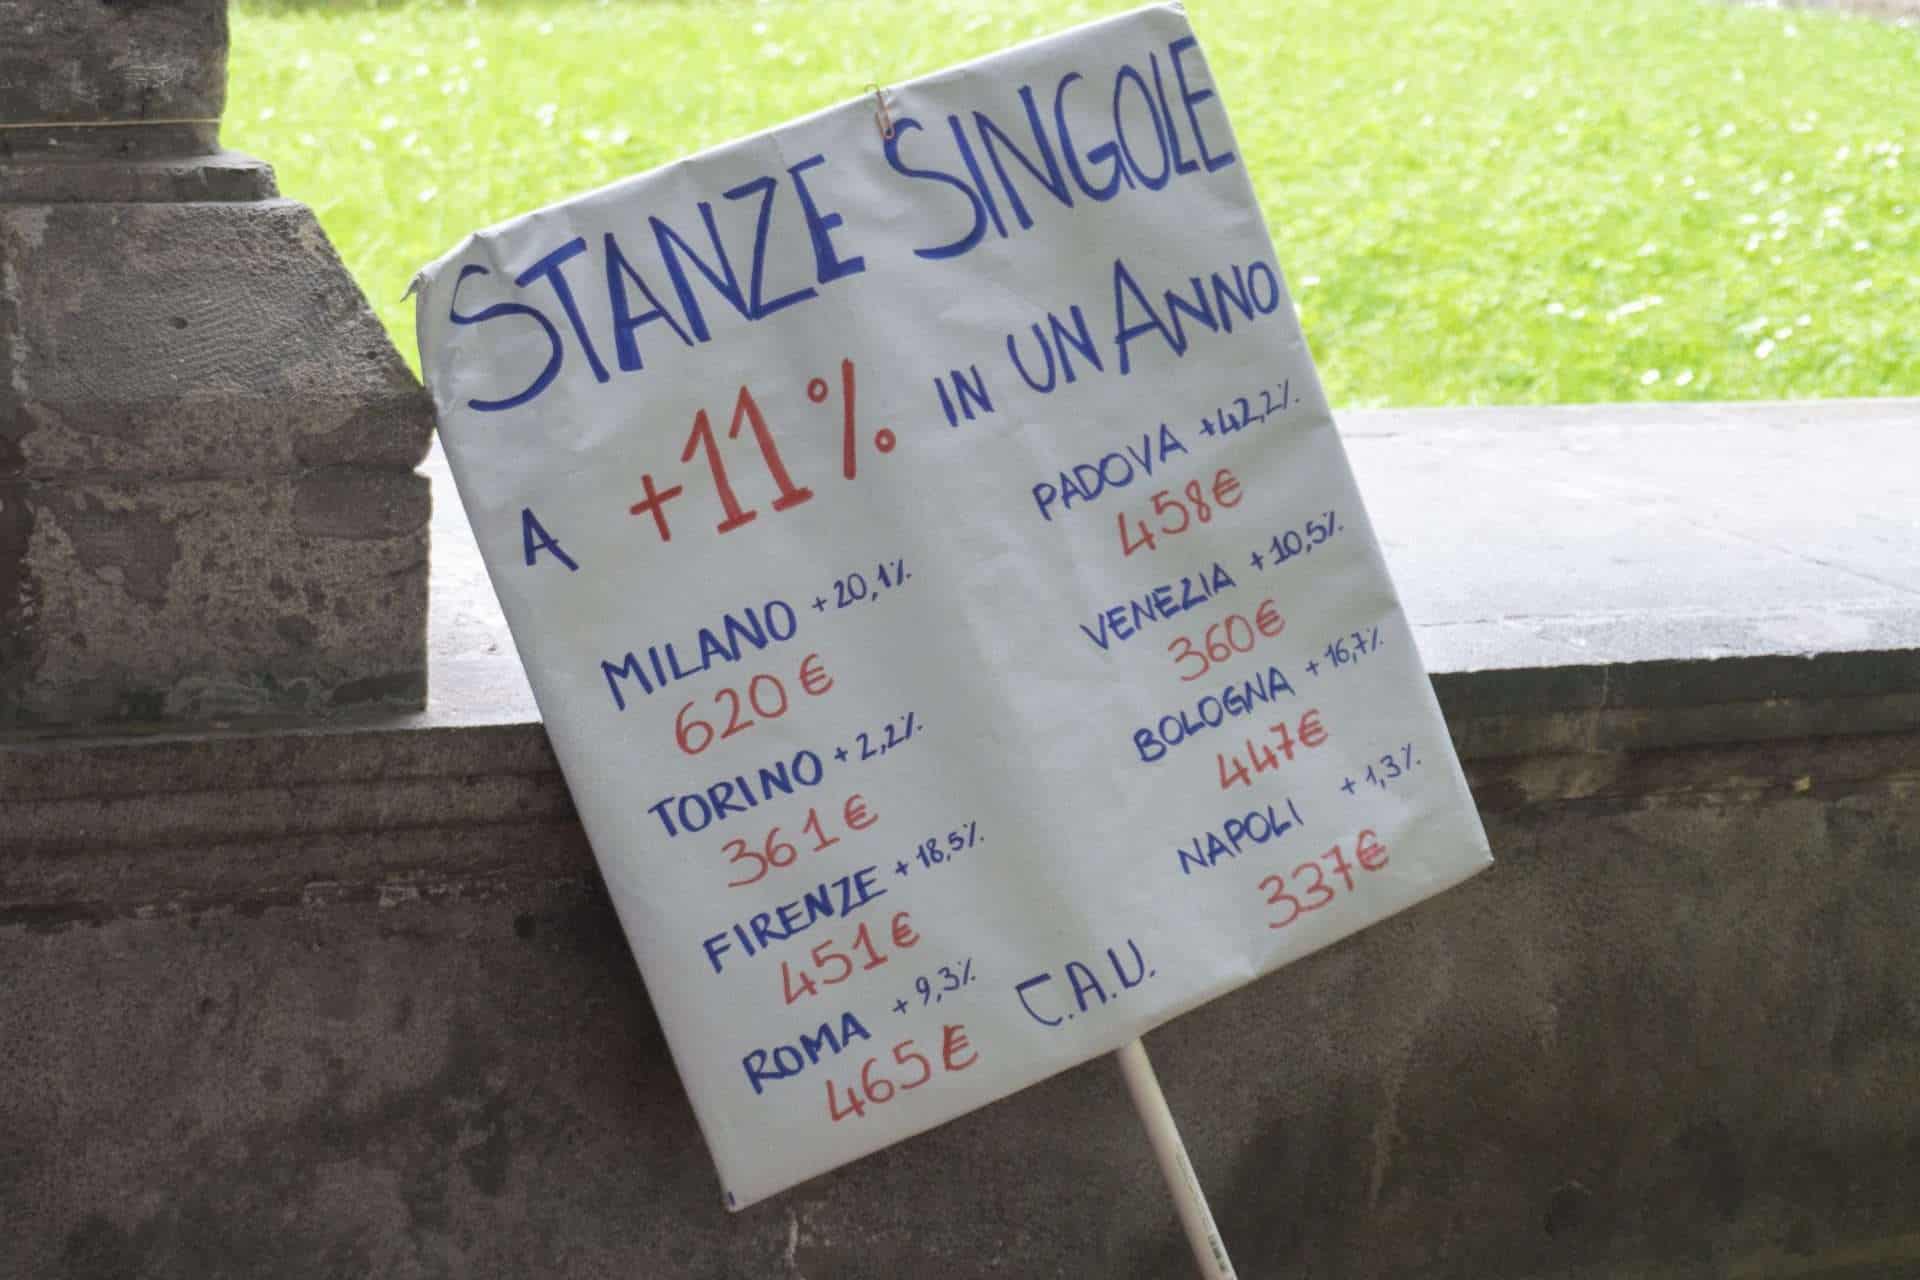 STANZE SINGOLE
A +11% IN UN ANNO
MILANO +20,1%
620€
TORINO +2,2%
361€
FIRENZE +18,5%
451€
ROMA +9,3%
465€
PADOVA +42,2%
458€
VENEZIA +10,5%
360€
BOLOGNA +16,7%
447€
NAPOLI +1,3%
337€
C.A.U.